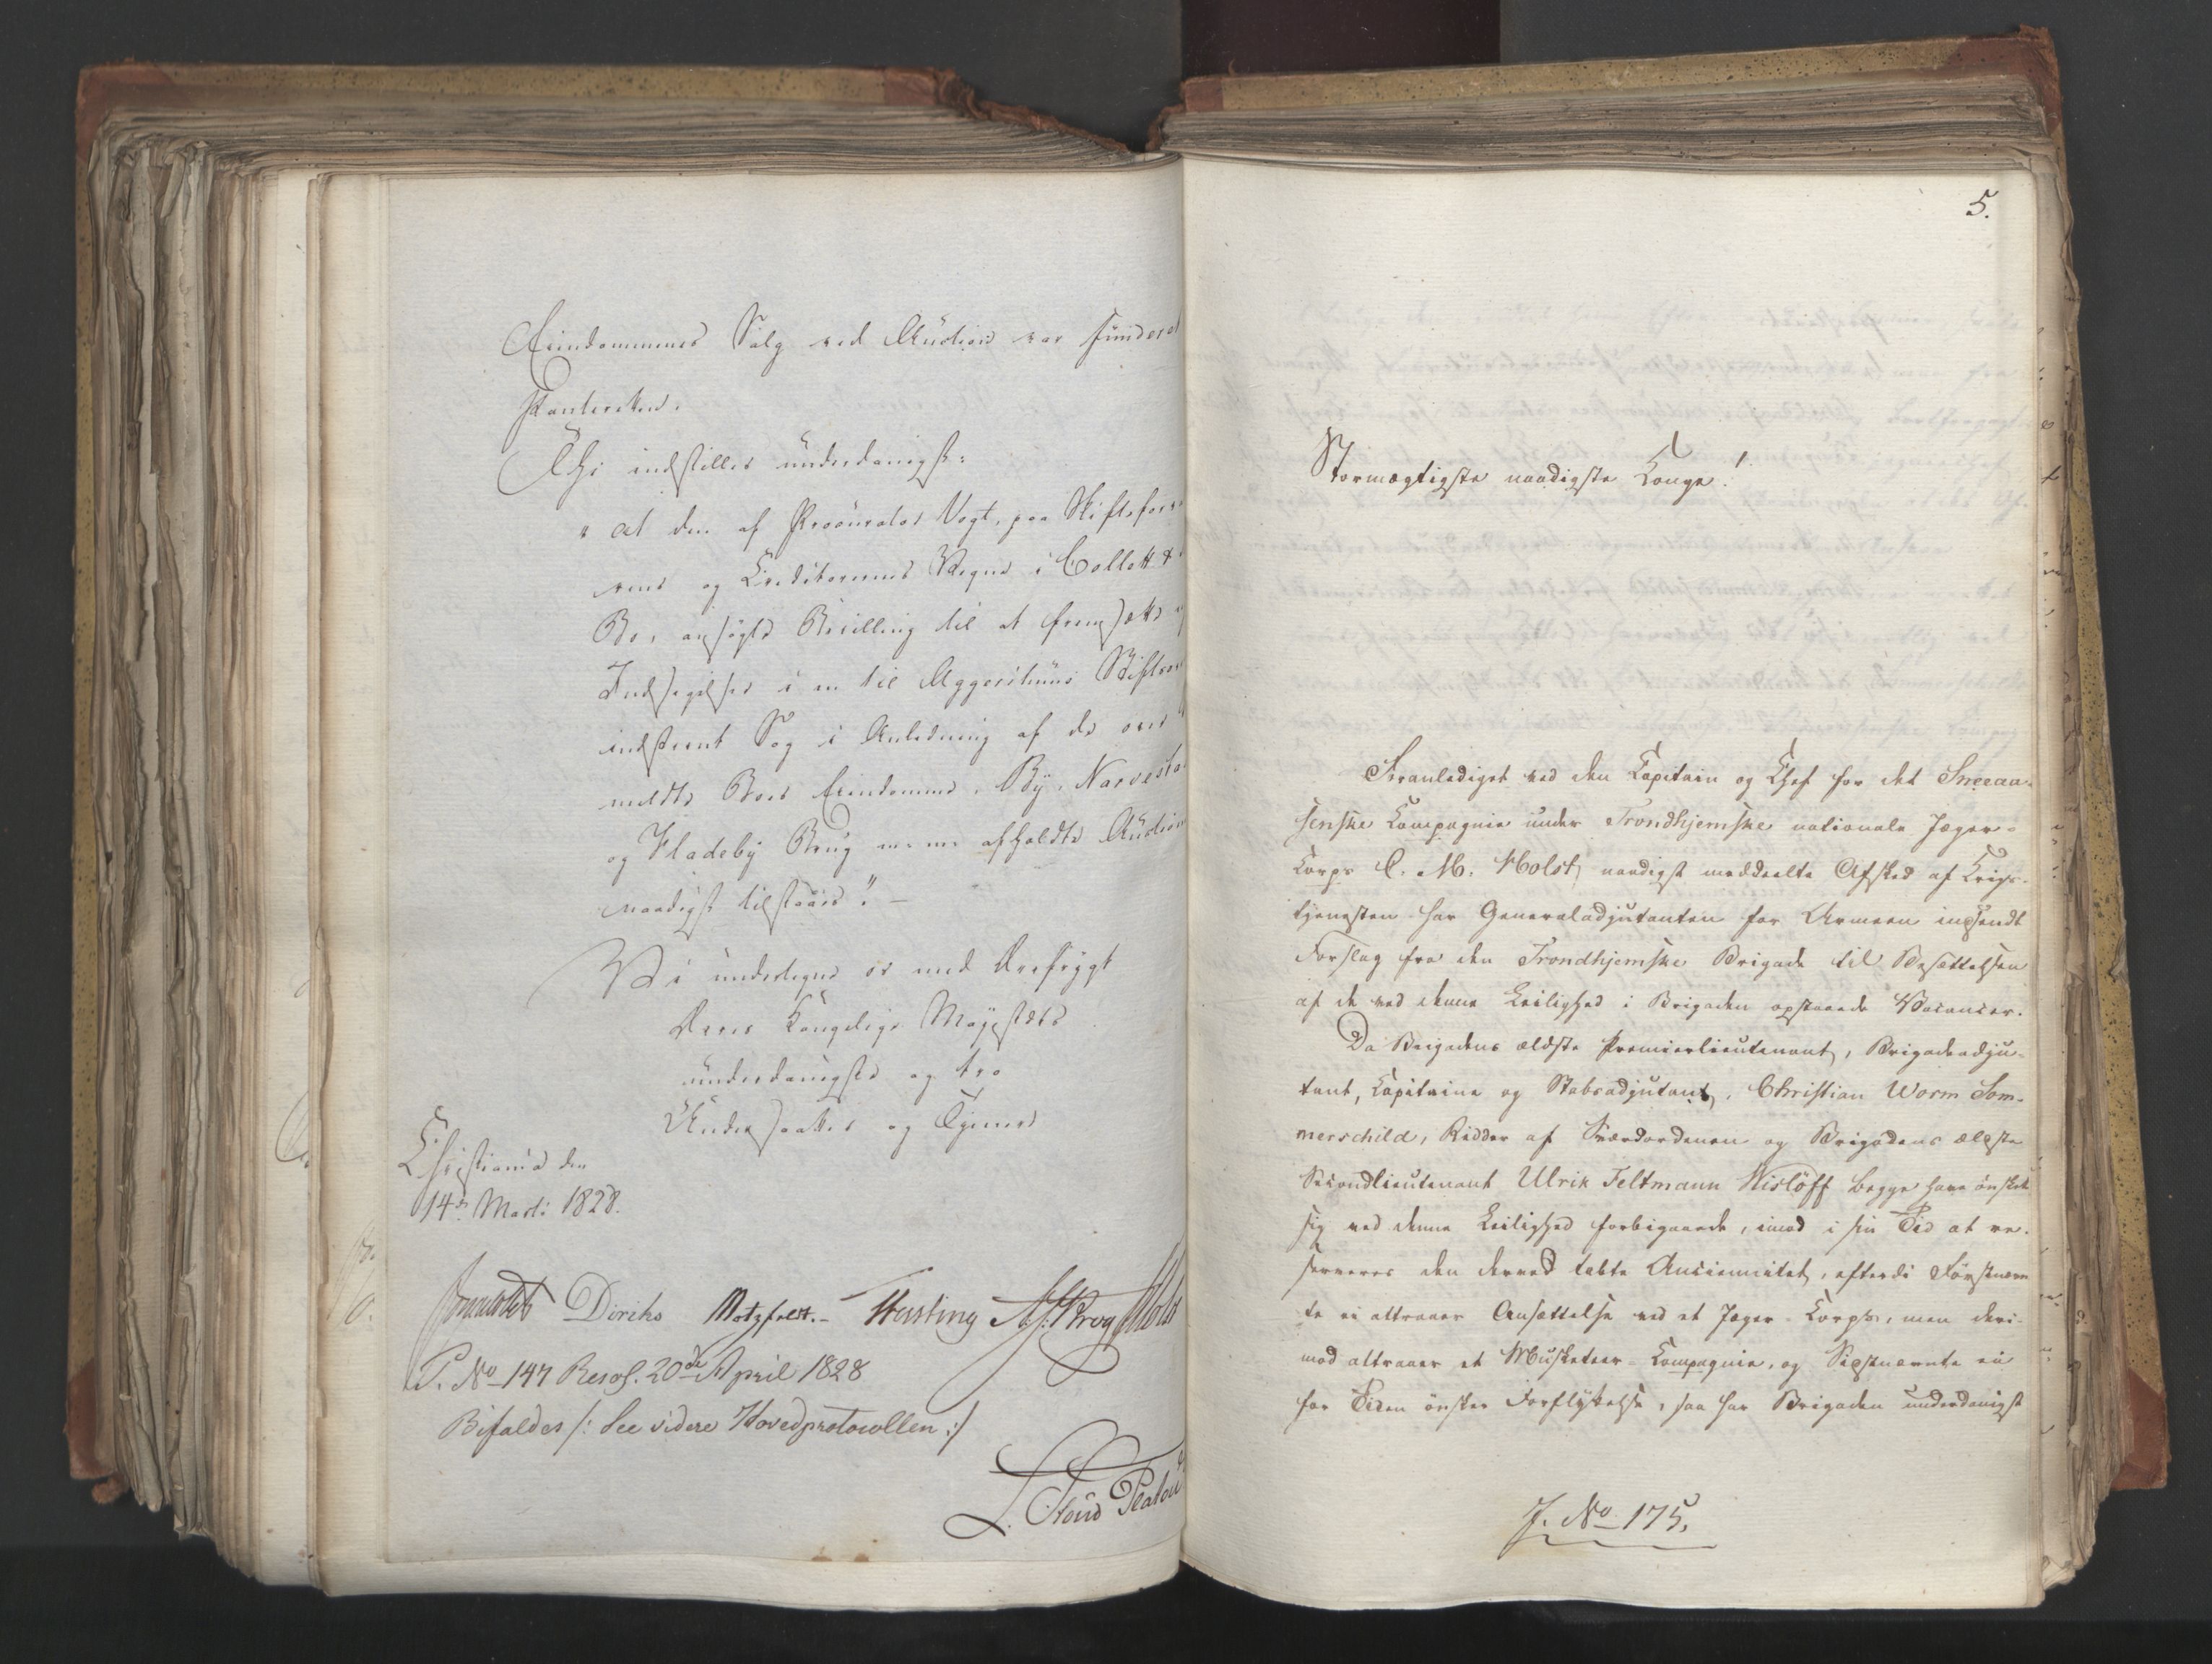 Eiendommenes Salg ved Auction var funderet
Panteretten.
Thi indstilles underdanigst:
"at den af Procurator Vogt, paa Skiftsforval
rens og Creditorernes Vegne i Collett &
Bo, ansøgte Bevilling til at fremsætte
Indsigelser i en til Aggershuus Stiftsover
indstevnt Sag i Anledning af de oven
meldte Boes Eiendomme, By, Narvesta
og Fladeby Brug m: m: afholdte Auction
naadigst tilstaaes". -
Vi undertegne os med Ærefrygt
Deres Kongelige Majestæts
underdanigste og tro
Undersaatter og Tjenere
Christiania den
14de Marts 1828.
Diriks Motzfeldt.- Fasting Krog Holst
P. No 147 Resol. 20de April 1828
Bifaldes /: See videre Hovedprotocollen :/
L. Stoud Platou
5.
Stormægtigste naadigste Konge!
Foranlediget ved den Capitain og Chef for det Sneeaa-
senske Compagnie under Trondhjemske nationale Jæger-
Corps C. M. Holst, naadigst meddeelte Afsked af Krigs-
tjenesten har Generaladjutanten for Armeen indsendt
Forslag fra den Trondhjemske Brigade til Besættelsen
af de ved denne Leilighed i Brigaden opstaaede Vacancer.
Da Brigadens ældste Premierlieutenant, Brigadeadju-
tant, Capitaine og Stabsadjutant, Christian Worm Som-
merschild, Ridder af Sværdordenen og Brigadens ældste
Secondlieutenant Ulrik Feltmann Wislöff begge have ønsket
sig ved denne Leilighed forbigaaede, imod i sin Tid at re-
serveres den derved tabte Anciennitet, efterdi Førstnævn
te ei attraaer Ansættelse ved et Jæger-Corps, men deri-
mod attraaer et Musketeer-Compagnie, og Sidstnævnte ei
for Tiden ønsker Forflyttelse, saa har Brigaden underdanigst
J. No 175.